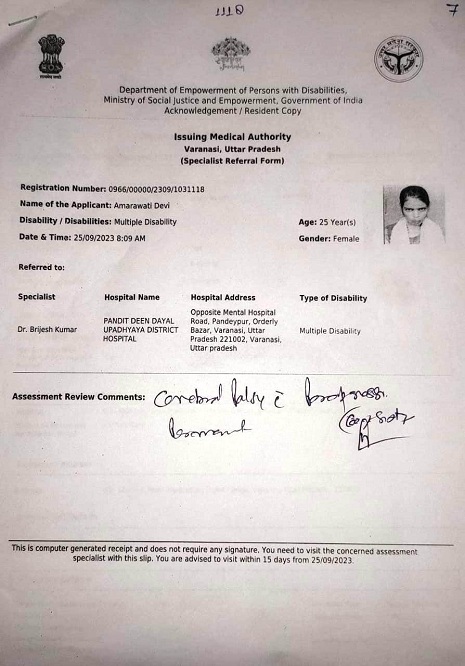 1110
7
Department of Empowerment of Persons with Disabilities,
Ministry of Social Justice and Empowerment, Government of India
Acknowledgement / Resident Copy
Issuing Medical Authority
Varanasi, Uttar Pradesh
(Specialist Referral Form)
Registration Number: 0966/00000/2309/1031118
Name of the Applicant: Amarawati Devi
Disability / Disabilities: Multiple Disability
Age: 25 Year(s)
Date & Time: 25/09/2023 8:09 AM
Gender: Female
Referred to:
Specialist Hospital Name Hospital Address Type of Disability
Dr. Brijesh Kumar
PANDIT DEEN DAYAL
UPADHYAYA DISTRICT
HOSPITAL
Opposite Mental Hospital
Road, Pandeypur, Orderly
Bazar, Varanasi, Uttar
Pradesh 221002, Varanasi,
Uttar pradesh
Multiple Disability
Assessment Review Comments: Cerebral Palsy c̄
This is computer generated receipt and does not require any signature. You need to visit the concerned assessment
specialist with this slip. You are advised to visit within 15 days from 25/09/2023.